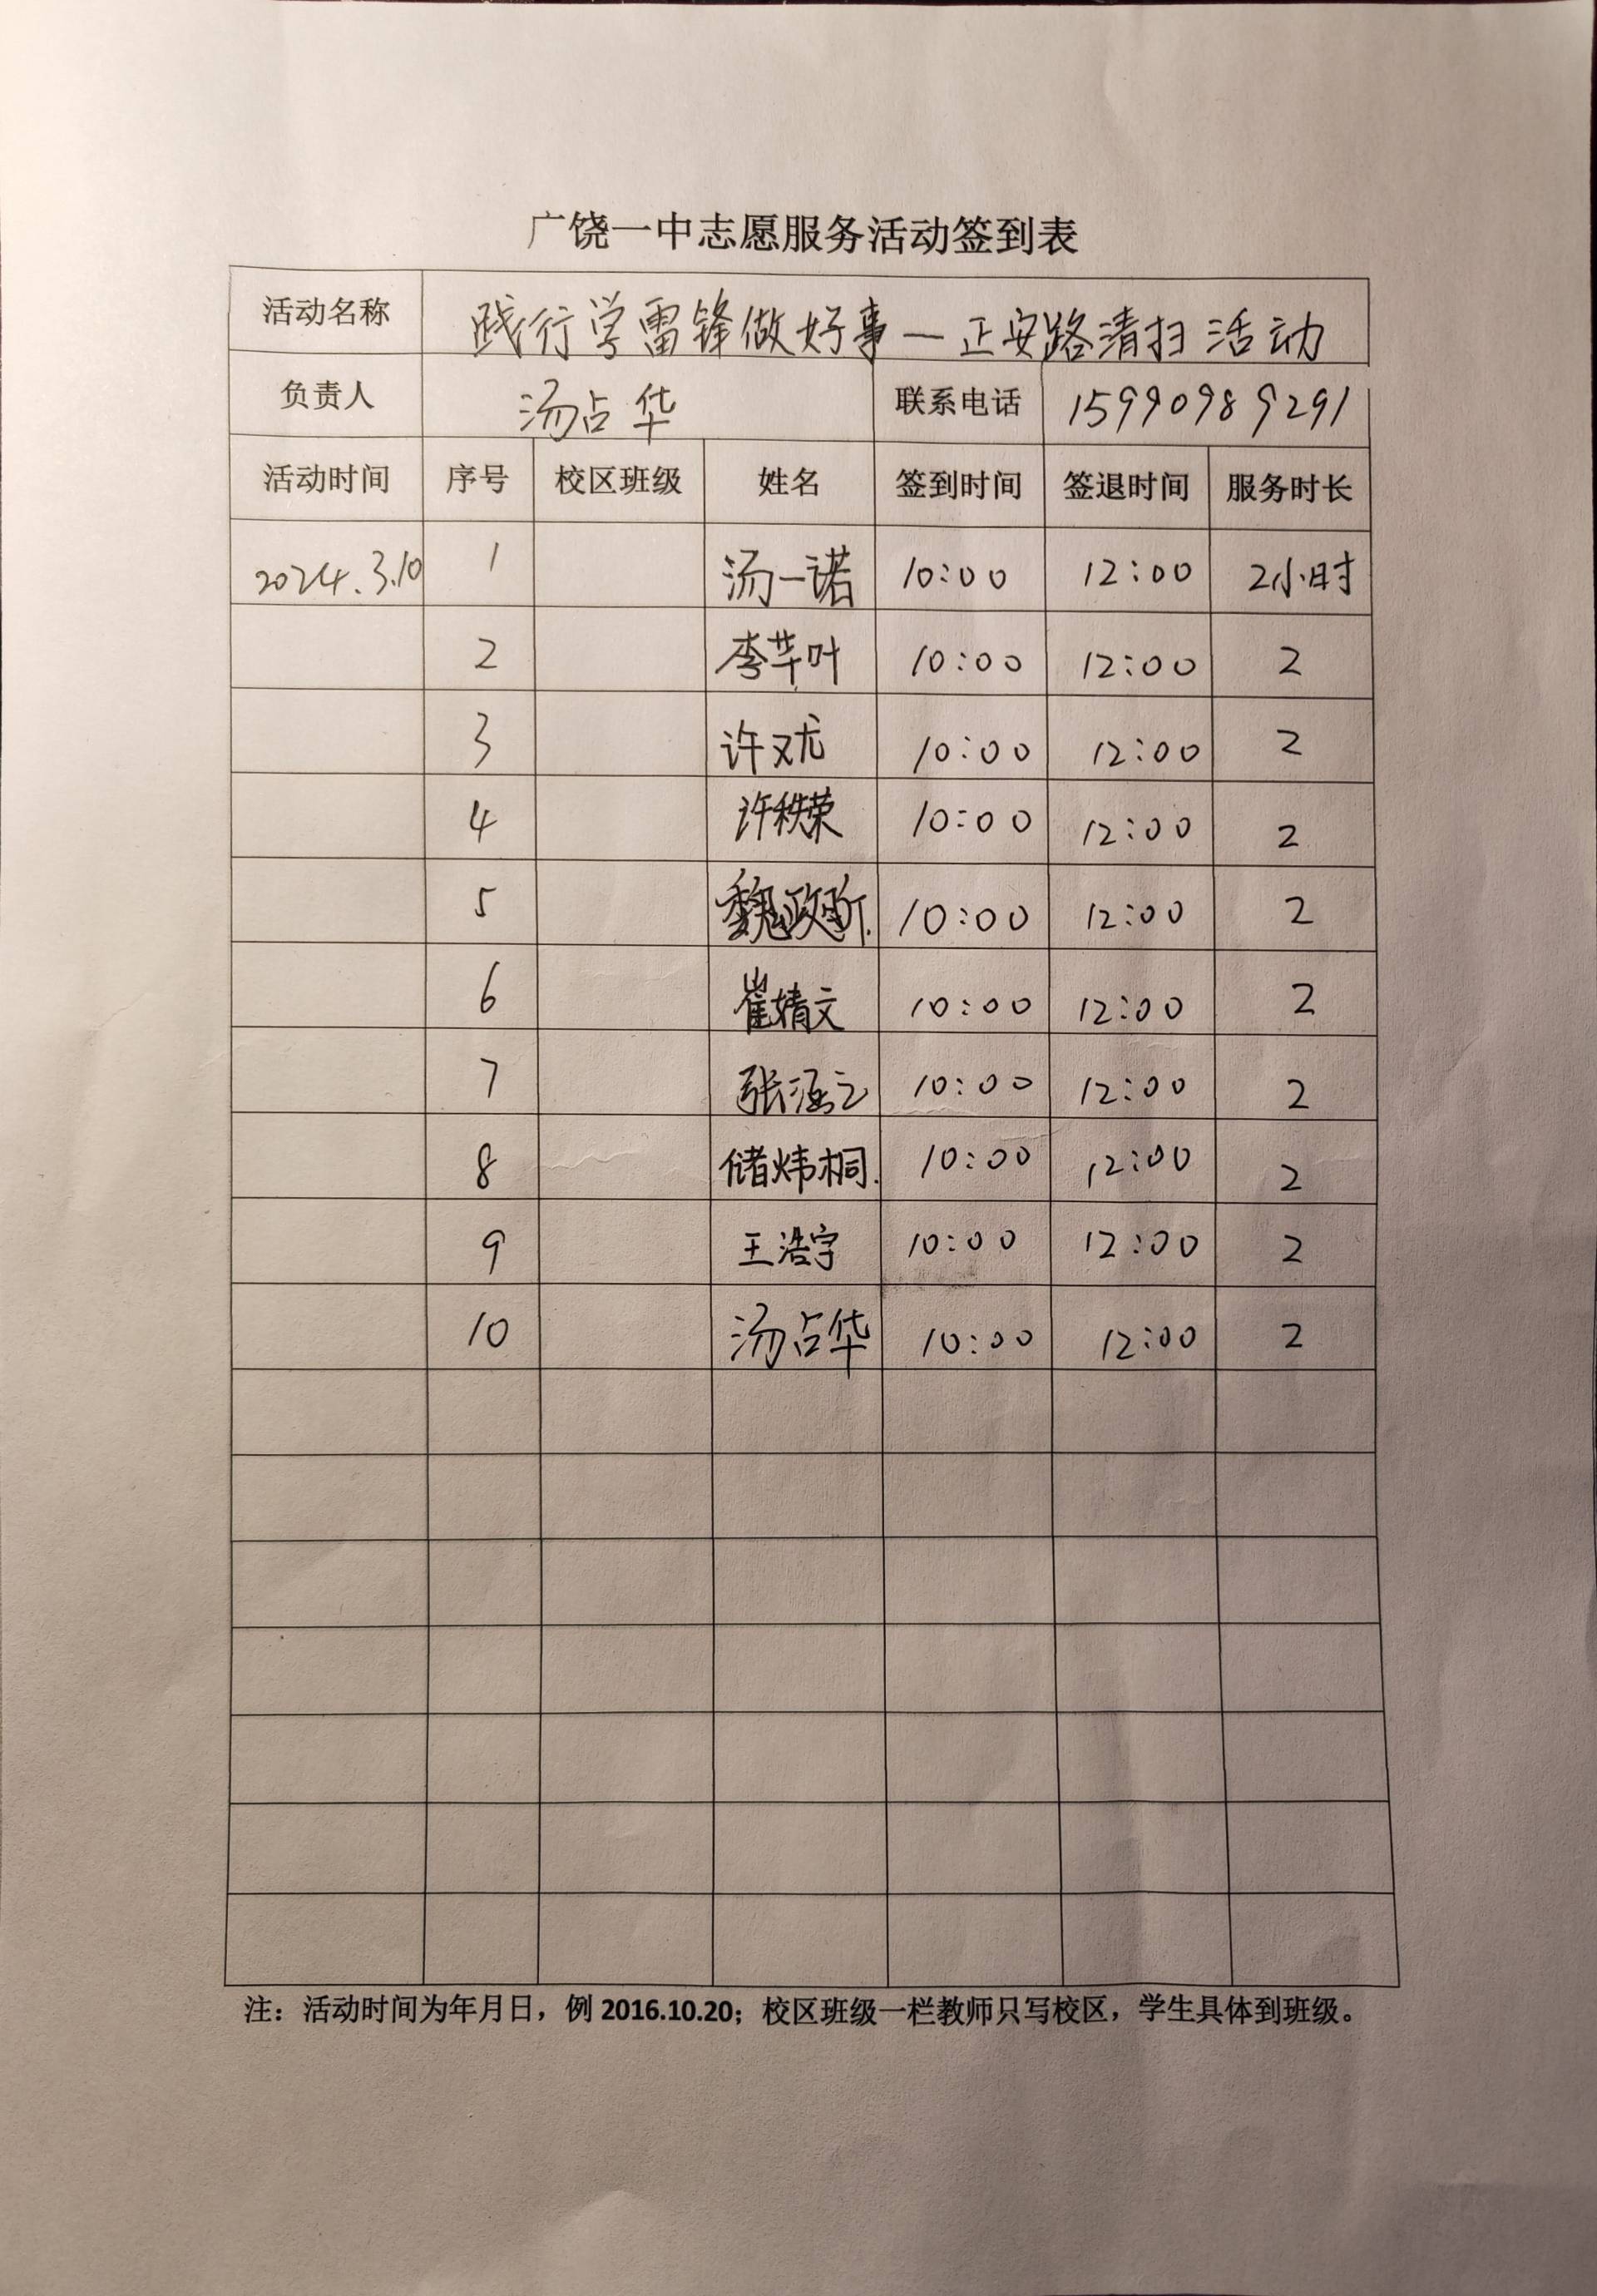 广饶一中志愿服务活动签到表
活动名称 践行学雷锋做好事—正安路清扫活动
负责人 汤占华 联系电话 15990989291
活动时间 序号 校区班级 姓名 签到时间 签退时间 服务时长
2024.3.10 1 汤一诺 10:00 12:00 2小时
2 李华叶 10:00 12:00 2
3 许又尤 10:00 12:00 2
4 许秩荣 10:00 12:00 2
5 魏 10:00 12:00 2
6 崔婧文 10:00 12:00 2
7 张涵之 10:00 12:00 2
8 储炜桐. 10:00 12:00 2
9 王浩宇 10:00 12:00 2
10 汤占华 10:00 12:00 2
注：活动时间为年月日，例 2016.10.20；校区班级一栏教师只写校区，学生具体到班级。